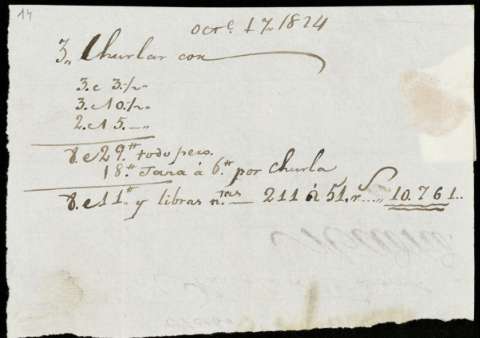 14
Octe. 17 1824
3,, Churlas con
3. @ 3.
3. @ 10.
2. @ 15.
8. @ 29.tt todo peso.
18.tt Tara á 6.tt por churla
8. @ 11.tt y libras n.tas 211 á 51. r. 10.761..